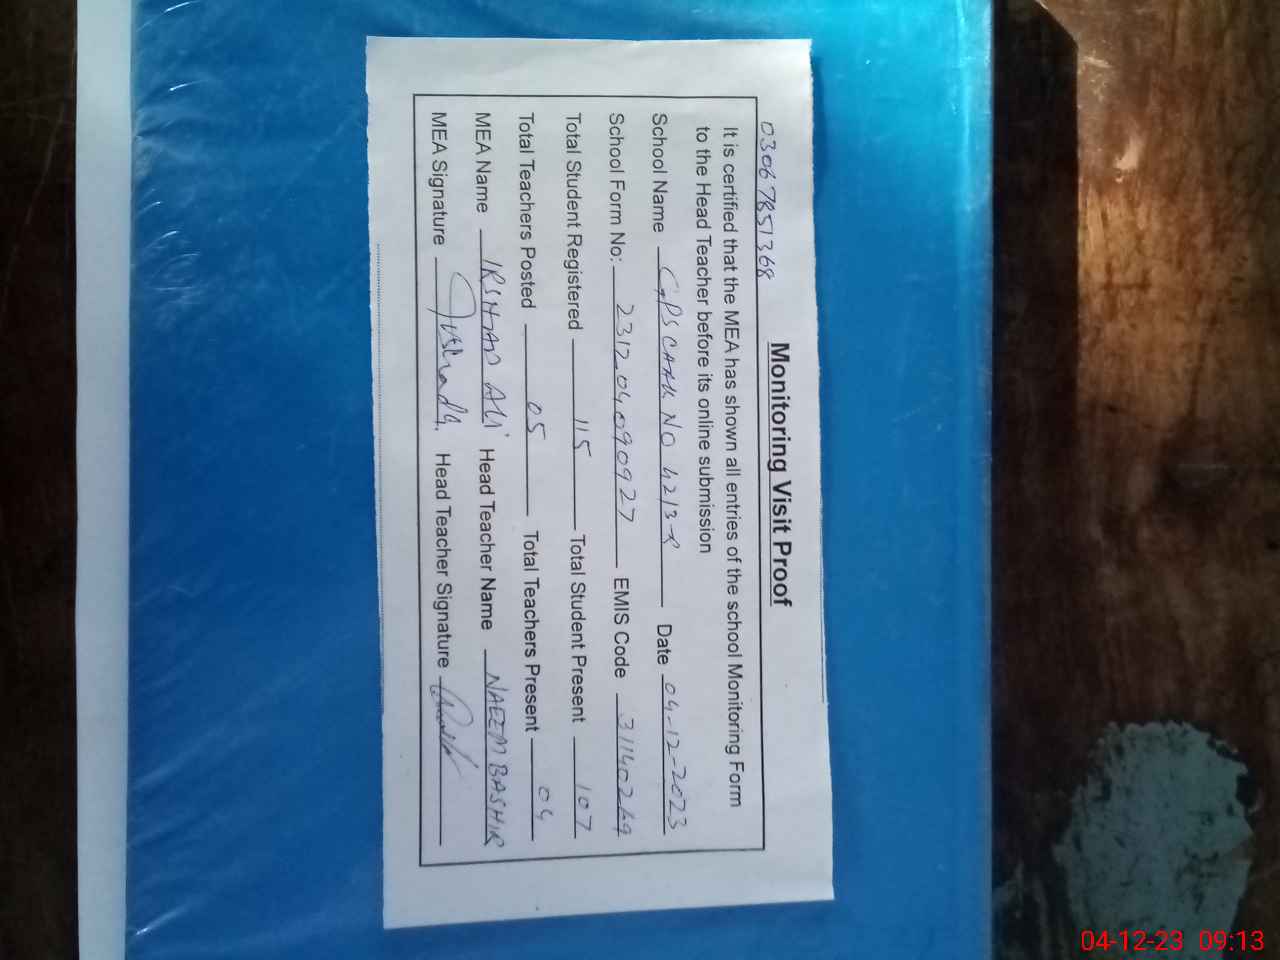 Monitoring Visit Proof
03067851368
It is certified that the MEA has shown all entries of the school Monitoring Form
to the Head Teacher before its online submission
School Name GPS CHAK NO 42/3-R Date 04-12-2023
School Form No: 231204090927 EMIS Code 31140269
Total Student Registered 115 Total Student Present 107
Total Teachers Posted 05 Total Teachers Present 04
MEA Name IRSHAD ALI Head Teacher Name NAEEM BASHIR
MEA Signature Irshad A. Head Teacher Signature
04-12-23 09:13